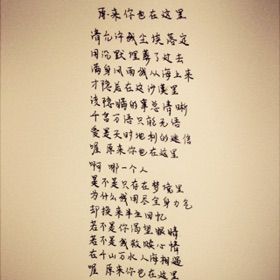 原来你也在这里
请允许我尘埃落定
用沉默埋葬了过去
满身风雨我从海上来
才隐居在这沙漠里
该隐瞒的事总清晰
千言万语只能无语
爱是天时地利的迷信
喔 原来你也在这里
啊 哪一个人
是不是只存在梦境里
为什么我用尽全身力气
却换来半生回忆
若不是你渴望眼睛
若不是我救赎心情
在千山万水人海相遇
喔 原来你也在这里